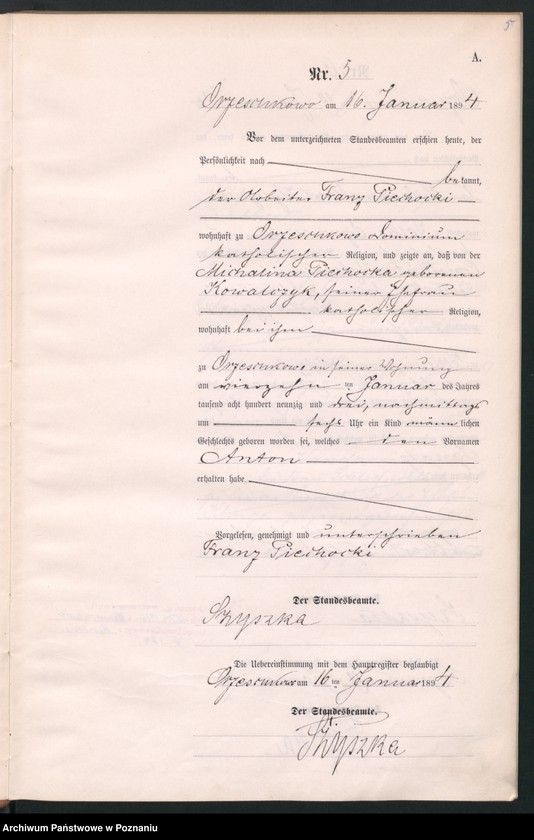 5
A.
Nr. 5
Orzeschkowo am 16. Januar 1894
Vor dem unterzeichneten Standesbeamten erschien heute, der
Persönlichkeit nach
bekannt,
der Arbeiter Franz Piechocki
wohnhaft zu Orzeschkowo Dominium
katholischer Religion, und zeigte an, daß von der
Michalina Piechocka geborenen
Kowalczyk, seiner Ehefrau
katholischer Religion,
wohnhaft bei ihm
zu Orzeschkowo in seiner Wohnung
am vierzehn ten Januar des Jahres
tausend acht hundert neunzig und drei, nachmittags
um sechs Uhr ein Kind männlichen
Geschlechts geboren worden sei, welches den Vornamen
Anton
erhalten habe
Vorgelesen, genehmigt und unterschrieben
Franz Piechocki
Der Standesbeamte.
Szyszka
Die Uebereinstimmung mit dem Hauptregister beglaubigt
Orzeschkowo am 16 ten Januar 1894
Der Standesbeamte.
Szyszka
Archiwum Państwowe w Poznaniu